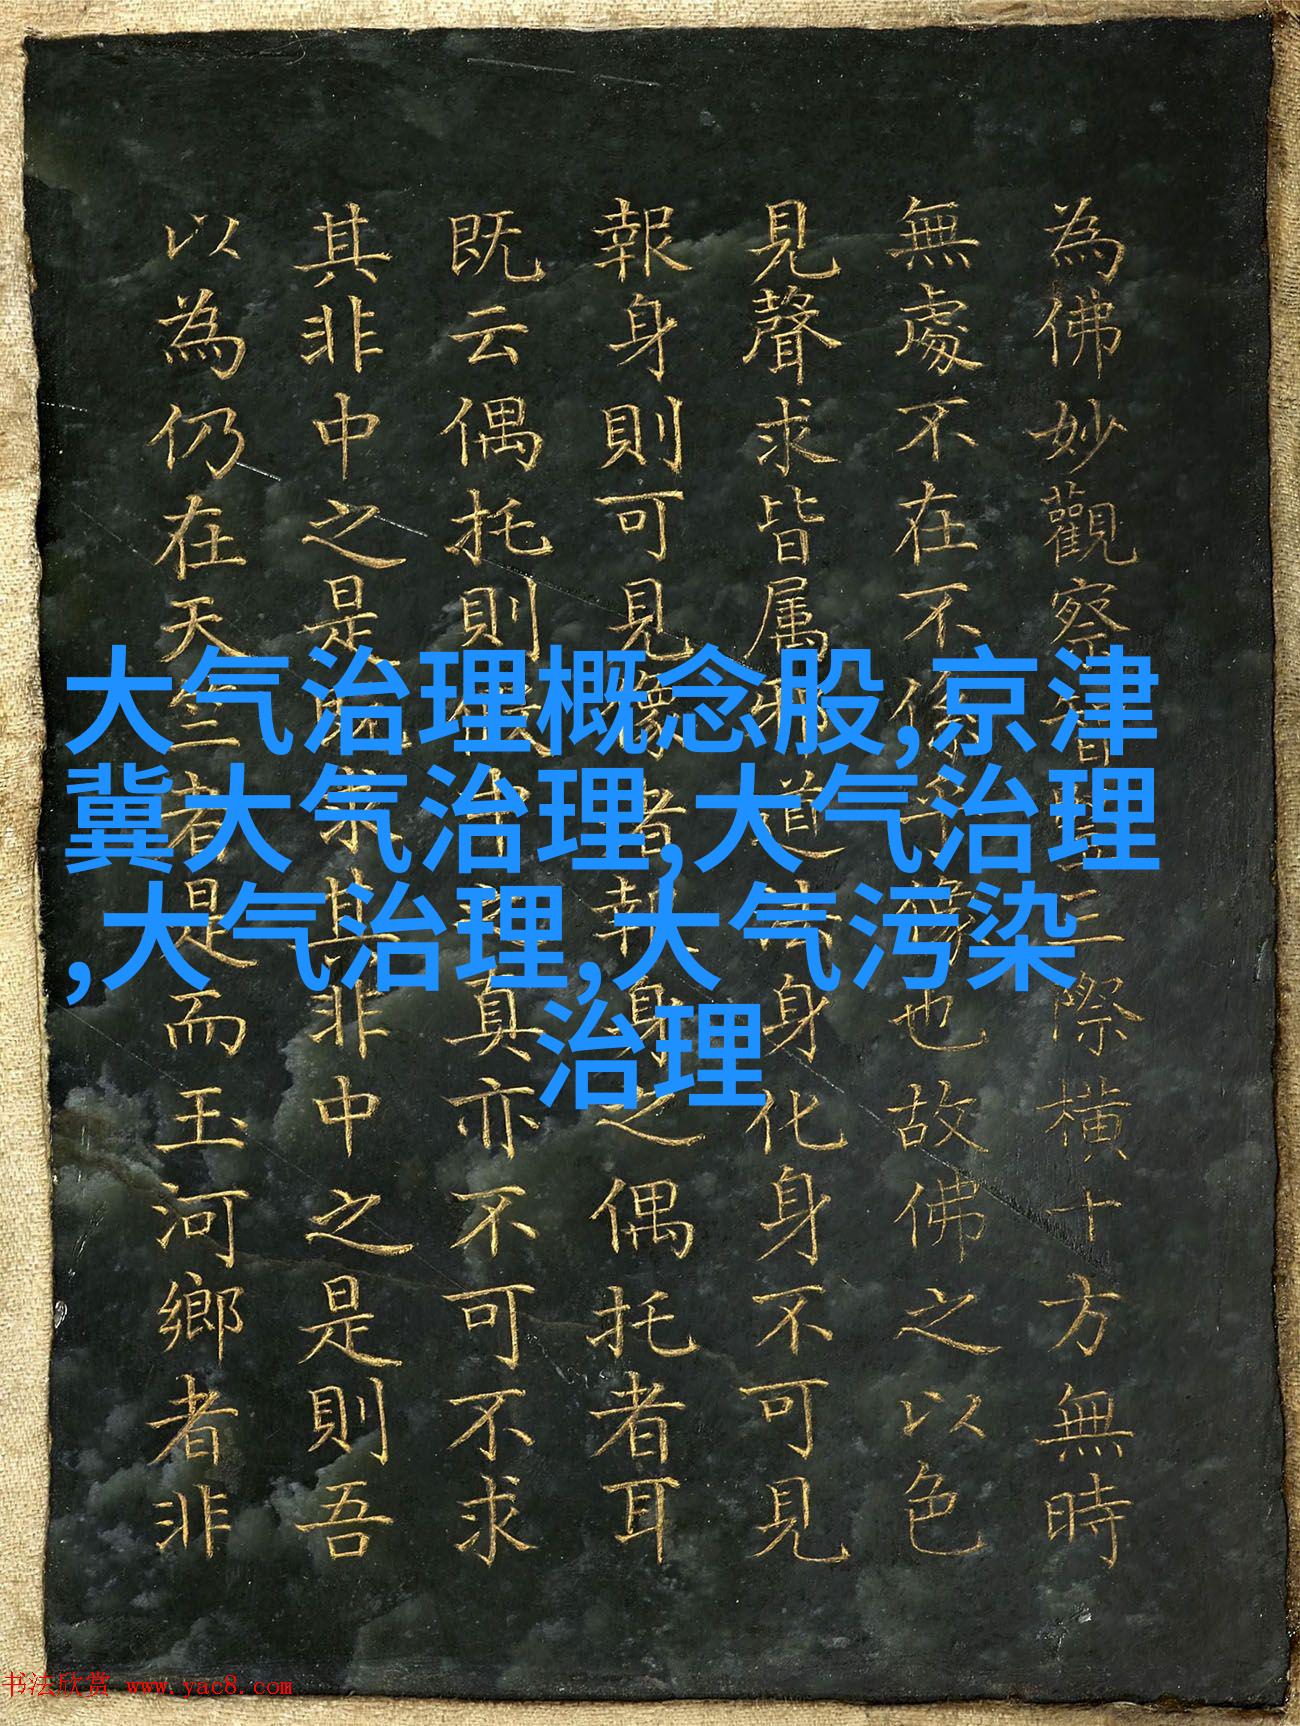 為佛妙觀察智三際橫十方無時
無處不在不像像也故佛之以色
見聲求皆属邪道法身化身不可見
報身則可見像者報身之偶托者耳
既云偶托則中之真亦不可不求
其非中之是既求其非中之是則吾
以為仍在天竺者是而玉河鄉者非
大气治理概念股,京津
冀大气治理,大气治理
,大气治理,大气污染
治理
书法欣赏 www.yac8.com